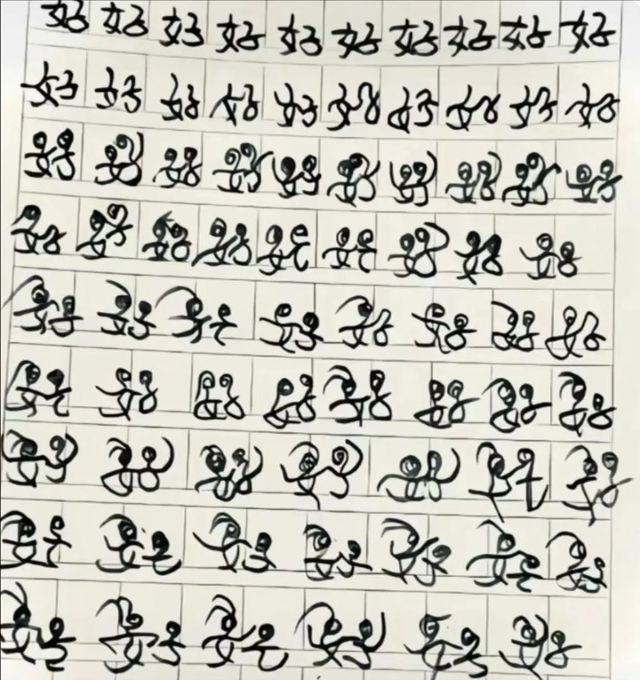 好好好好好好好好好好
好好好好好好好好好好
好好好好好好好好好好
好好好好好好好好好
好好好好好好好好
好好好好好好好好
好好好好好好好
好好好好好好好
好好好好好好